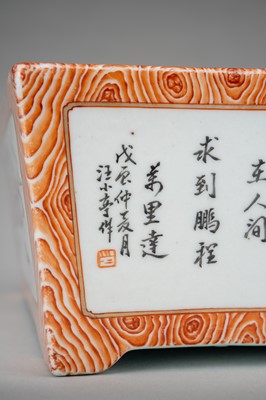 在人间
求到鹏程
萬里達
戊辰仲夏月
汪小亭作